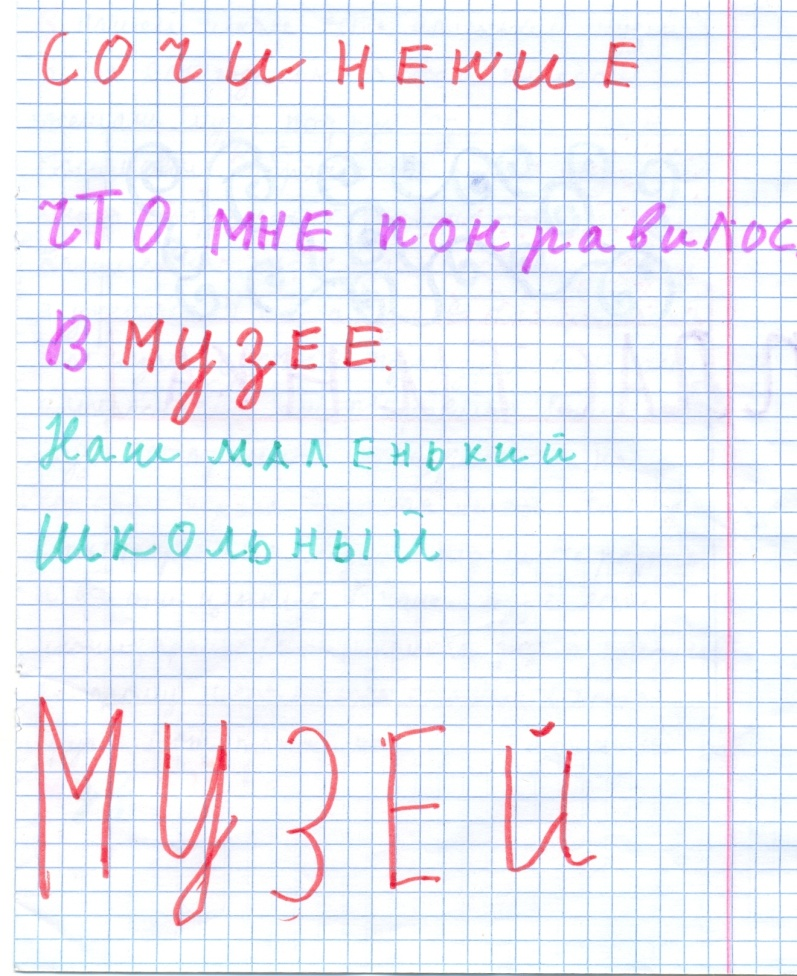 СОЧИНЕНИЕ
ЧТО МНЕ понравилос
В МУЗЕЕ.
Наш маленький
школьный
МУЗЕЙ